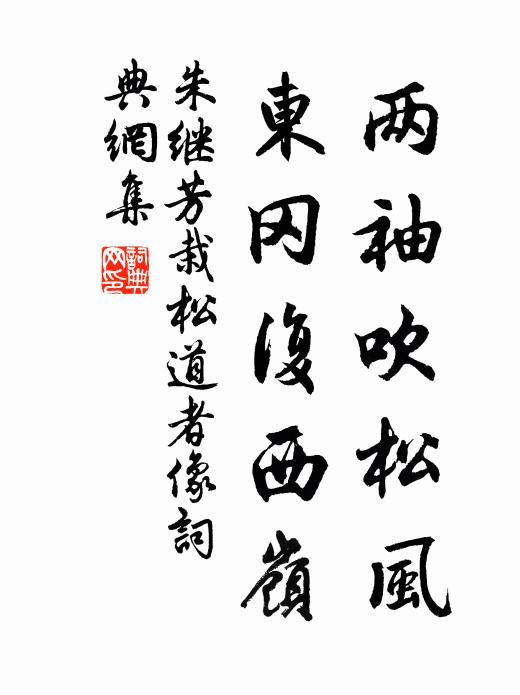 两袖吹松風
東冈復西嶺
朱继芳栽松道者像詞
典網集
詞典
网印